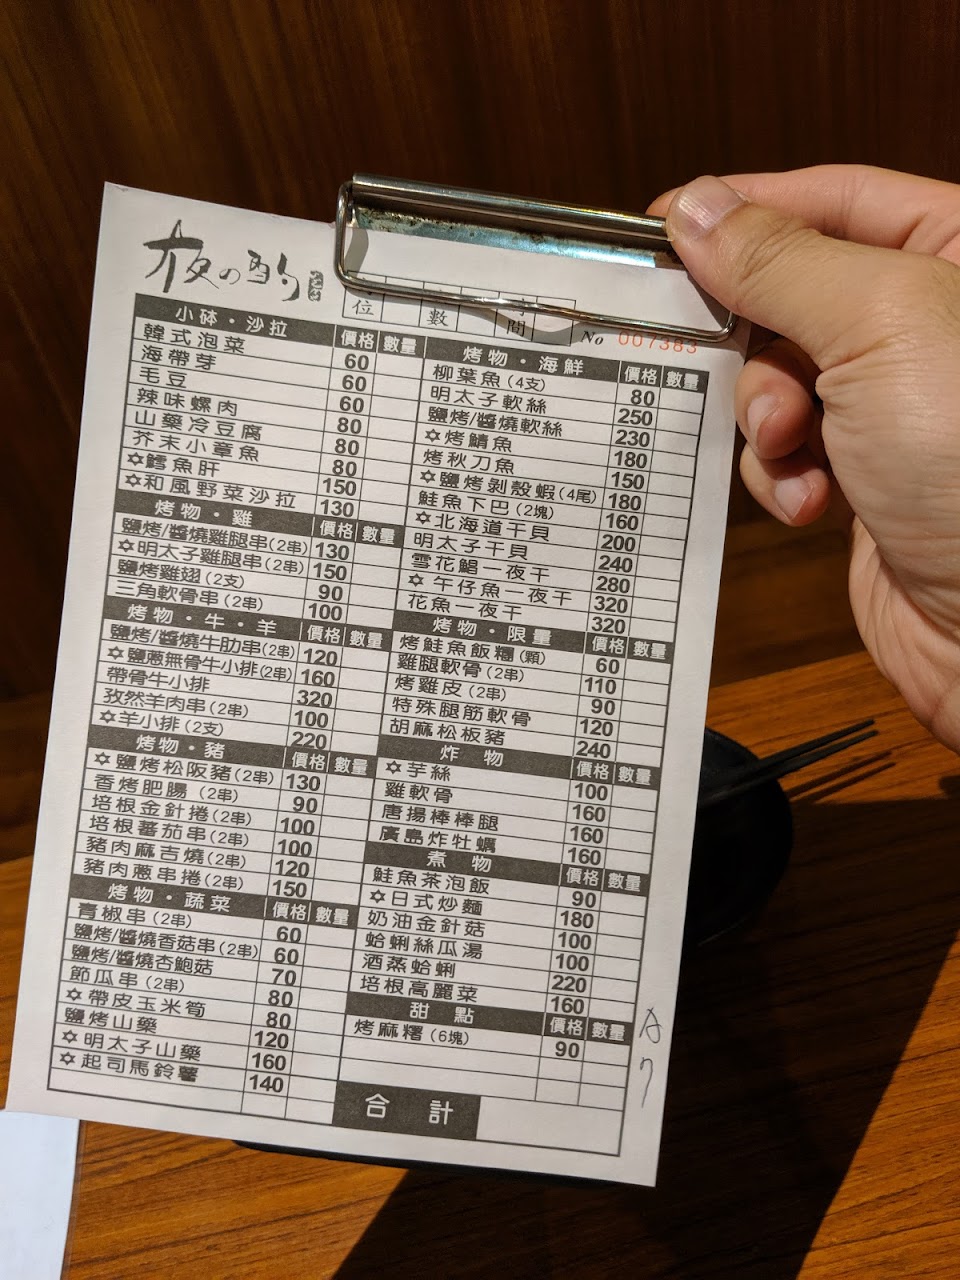 夜の酌
位 數 時間
No 007383
小砵・沙拉 價格 數量
韓式泡菜 60
海帶芽 60
毛豆 60
辣味螺肉 80
山藥冷豆腐 80
芥末小章魚 80
✡鱈魚肝 150
✡和風野菜沙拉 130
烤物・雞 價格 數量
鹽烤/醬燒雞腿串(2串) 130
✡明太子雞腿串(2串) 150
鹽烤雞翅(2支) 90
三角軟骨串(2串) 100
烤物・牛・羊 價格 數量
鹽烤/醬燒牛肋串(2串) 120
✡鹽蔥無骨牛小排(2串) 160
帶骨牛小排 320
孜然羊肉串(2串) 100
✡羊小排(2支) 220
烤物・豬 價格 數量
✡鹽烤松阪豬(2串) 130
香烤肥腸(2串) 90
培根金針捲(2串) 100
培根蕃茄串(2串) 100
豬肉麻吉燒(2串) 120
豬肉蔥串捲(2串) 150
烤物・蔬菜 價格 數量
青椒串(2串) 60
鹽烤/醬燒香菇串(2串) 60
鹽烤/醬燒杏鮑菇 70
節瓜串(2串) 80
✡帶皮玉米筍 80
鹽烤山藥 120
✡明太子山藥 160
✡起司馬鈴薯 140
烤物・海鮮 價格 數量
柳葉魚(4支) 80
明太子軟絲 250
鹽烤/醬燒軟絲 230
✡烤鯖魚 180
烤秋刀魚 150
✡鹽烤剝殼蝦(4尾) 180
鮭魚下巴(2塊) 160
✡北海道干貝 200
明太子干貝 240
雪花鯧一夜干 280
✡午仔魚一夜干 320
花魚一夜干 320
烤物・限量 價格 數量
烤鮭魚飯糰(顆) 60
雞腿軟骨(2串) 110
烤雞皮(2串) 90
特殊腿筋軟骨 120
胡麻松板豬 240
炸物 價格 數量
✡芋絲 100
雞軟骨 160
唐揚棒棒腿 160
廣島炸牡蠣 160
煮物 價格 數量
鮭魚茶泡飯 90
✡日式炒麵 180
奶油金針菇 100
蛤蜊絲瓜湯 100
酒蒸蛤蜊 220
培根高麗菜 160
甜點 價格 數量
烤麻糬(6塊) 90
合計